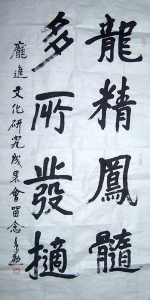 龍精鳳髓
多所發摘
龐進文化研究成果會留念